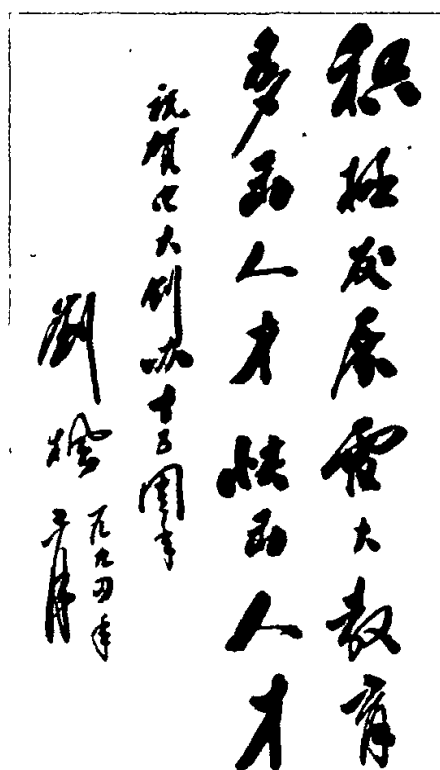 积极发展电大教育
多出人才快出人才
祝贺电大创办十五周年
刘枫
一九九四年
三月